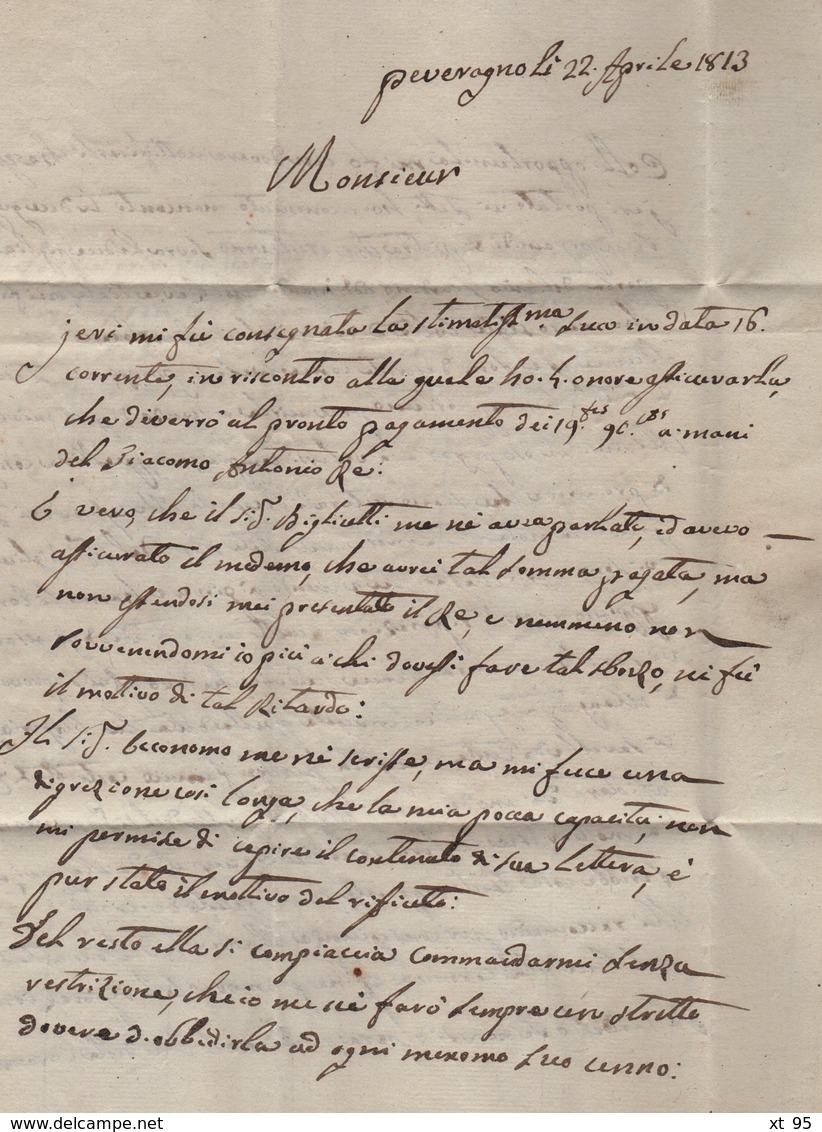 Peveragno li 22. Aprile 1813
Monsieur
jeri mi fù consegnata la stimatiss.ma Sua in data 16.
corrente, in riscontro alla quale ho l'onore assicurarla,
che diverrò al pronto pagamento dei 19.fcs 90.cts a mani
del Giacomo Antonio Rè:
È vero, che il Sig. Biglietti me nè avea parlato, ed avevo
assicurato il medemo, che avrei tal somma pagata, ma
non essendosi mai presentato il Rè, e nemmeno non
sovvenendomi io più a chi dovessi fare tal sborzo, ni fù
il mottivo di tal Ritardo:
Il Sig. Economo me nè scrisse, ma mi fece una
digrezione così longa, che la mia pocca capacità, non
mi permise di capire il contenuto di sua Lettera, è
pur stato il mottivo del rifiuto:
Del resto ella si compiaccia commandarmi senza
restrizione, che io me nè farò sempre un stretto
dovere d'obbedirla ad ogni menomo suo cenno:
xt 95